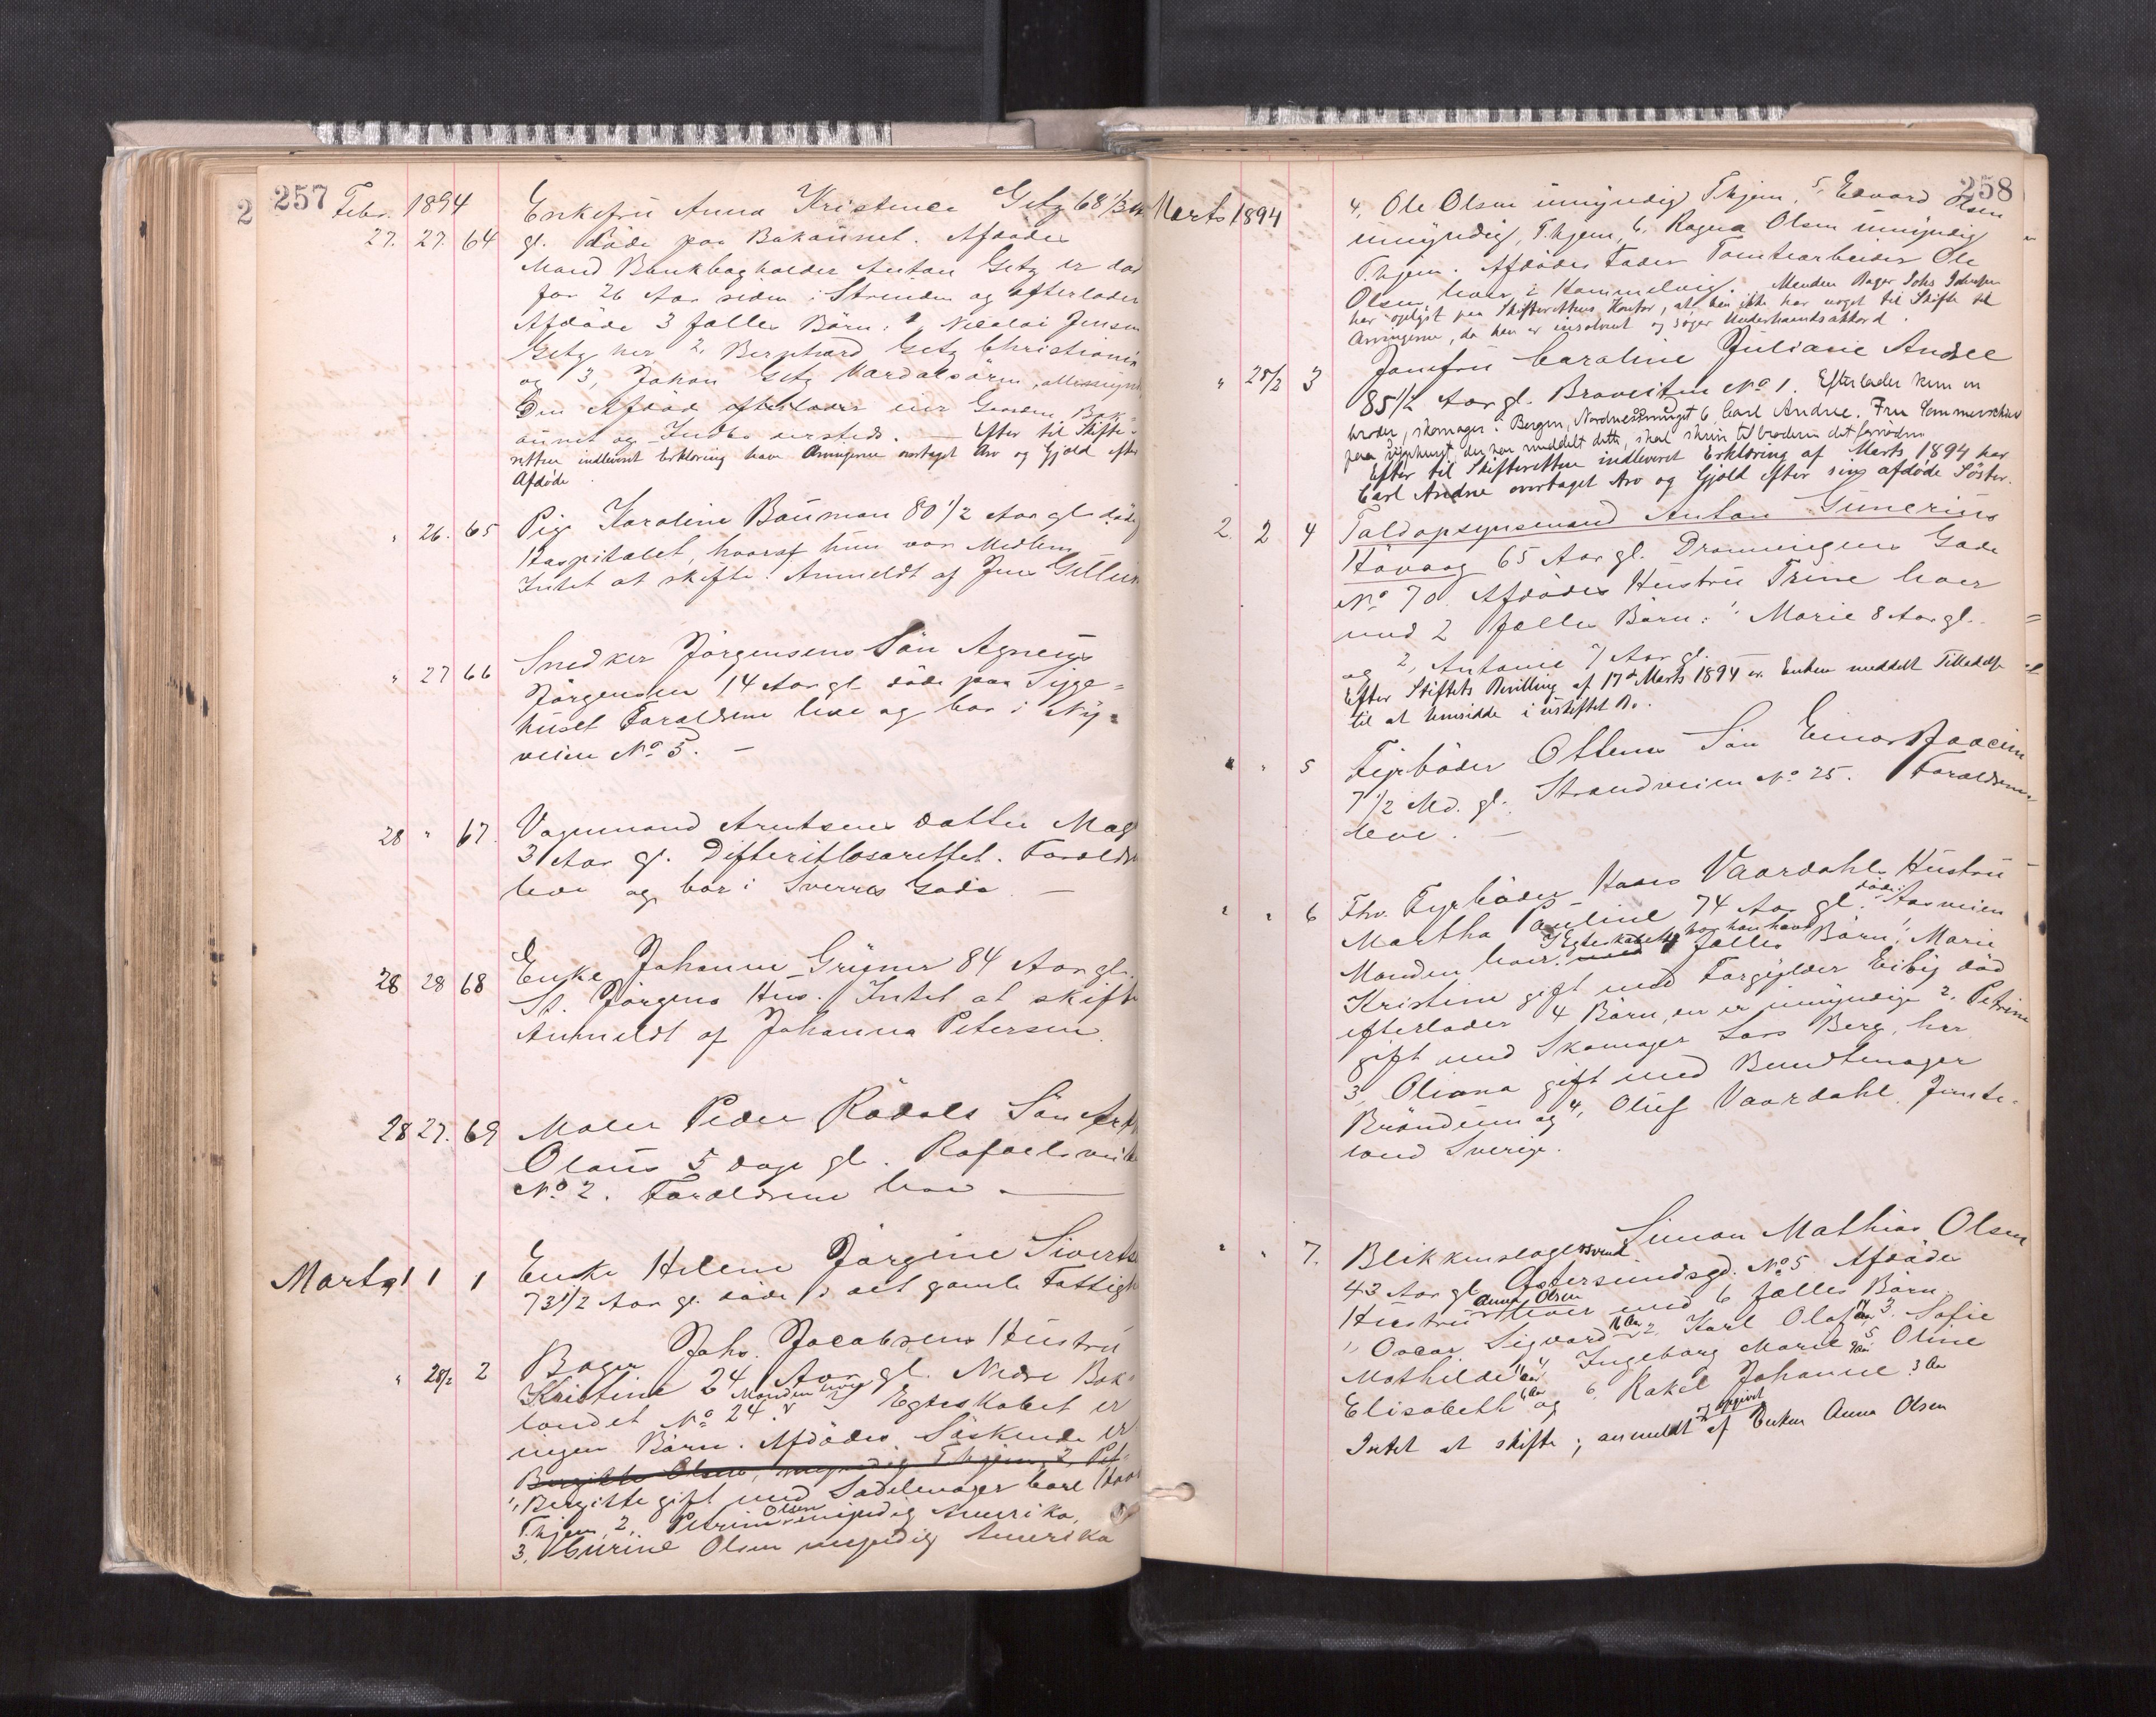 2
257
Febr. 1894
Enkefru Anna Kristence Getz 68 1/3 Aar
27. 27. 64 gl. døde paa Bakaunet. Afdødes
Mand Bankbogholder Anton Getz er død
for 26 Aar siden i Strinden og efterlader
Afdøde 3 fælles Børn: 1, Nicolai Jensen
Getz her 2. Bernhard Getz Christiania
og 3, Johan Getz Værdalsøren, alle myndige
Den Afdøde efterlader sig Gaarden Bak-
aunet og Indbo dersteds. — Efter til Skifte-
retten indleveret Erklæring have Arvingerne overtaget Arv og Gjæld efter
Afdøde.
" 26. 65 Pige Karoline Bauman 80 1/2 Aar gl. døde
Hospitalet, hvoraf hun var Medlem
Intet at skifte. Anmeldt af Jens
" 27 66 Snedker Jørgensens Søn Agnæus
Jørgensen 14 Aar gl. døde paa Syge-
huset Forældrene leve og bor i Ny-
veien No 5. —
28 " 67. Vognmand Arntsens datter Mag
3 Aar gl. Difteritlasarettet. Forældre
leve og bor i Sverres Gade. —
28 28 68 Enke Johanne Grüner 84 Aar gl.
St. Jørgens Hus. Intet at skifte
Anmeldt af Johanna Petersen.
28 27. 69 Maler Peder Rødals Søn
Olaus 5 dage gl. Rafaelsveiten
No 2. Forældrene leve. —
Marts 1 1 1 Enke Helene Jørgine Siverts
73 1/2 Aar gl. døde i det gamle Fattigh
" 28/2 2 Bager Johs. Jacobsens Hustru
Kristine 24 Aar gl. Nedre Bak-
landet No 24. Manden lever I Egteskabet er
ingen Børn. Afdødes Søskende er
Bergitte Olsen, myndig T.hjem, 2, Pet-
1, Bergitte gift med Sadelmager Carl
T.hjem, 2, Petrine Olsen myndig Amerika, og
3, Olsen myndig Amerika
258
Marts 1894
4, Ole Olsen umyndig T.hjem, 5, Edvard Olsen
umyndig, T.hjem, 6, Ragna Olsen umyndig
T.hjem. Afdødes Fader Tomtearbeider Ole
Olsen lever i Hommelvig. Manden Bager Johs Jacobsen
har oplyst paa Skifterettens Kontor, at han ikke har noget til Skifte til
Arvingerne, da han er insolvent og søger Underhaandsakkord.
" 28/2 3 Jomfru Caroline Juliane Andree
85 1/2 Aar gl. Braveiten No 1. Efterlader kun en
broder, skomager i Bergen, Nordnessmuget 6, Carl Andree. Fru
paa der har meddelt dette, skal skrive til broderen det fornødne
Efter til Skifteretten indleveret Erklæring af Marts 1894 har
Carl Andree overtaget Arv og Gjæld efter sin afdøde Søster.
2. 2 4 Toldopsynsmand Anton Gunerius
Høvaag 65 Aar gl. Dronningens Gade
No 70. Afdødes Hustru Trine lever
med 2 fælles Børn: 1, Marie 8 Aar gl.
og 2, Antonie 7 Aar gl.
Efter Stiftets Bevilling af 17de Marts 1894 er Enken meddelt Tilladelse
til at hensidde i uskiftet Bo.
" " 5 Fyrbøder Ottens Søn Einar Joacim
7 1/2 Md. gl. Strandveien No 25. Forældrene
leve. —
" " 6 Fhv. Fyrbøder Hans Vaardahls Hustru
Martha Pauline 74 Aar gl. døde: Aasveien
Manden lever. I Egteskabet har han havt fælles Børn: 1, Marie
Kristine gift med Forgylder Eibig død
efterlader 4 Børn, der er umyndige 2. Petrine
gift med Skomager Lars Berg, her
3, Oliana gift med Bundtmager
Brøndum og 4, Oluf Vaardahl, Jemte-
land Sverige.
" " 7. Blikkenslagersvend Simon Mathias Olsen
43 Aar gl. Østersundsgd. No 5 Afdødes
Hustru Anna Olsen lever med 6 fælles Børn,
1, Oscar Sigvard 16 Aar 2. Karl Olaf 14 Aar, 3. Sofie
Mathilde 11 Aar 4 Ingeborg Marie 9 Aar 5 Oline
Elisabeth 6 Aar og 6. Rakel Johanne 3 Aar
Intet at skifte; anmeldt og opgivet af Enken Anna Olsen